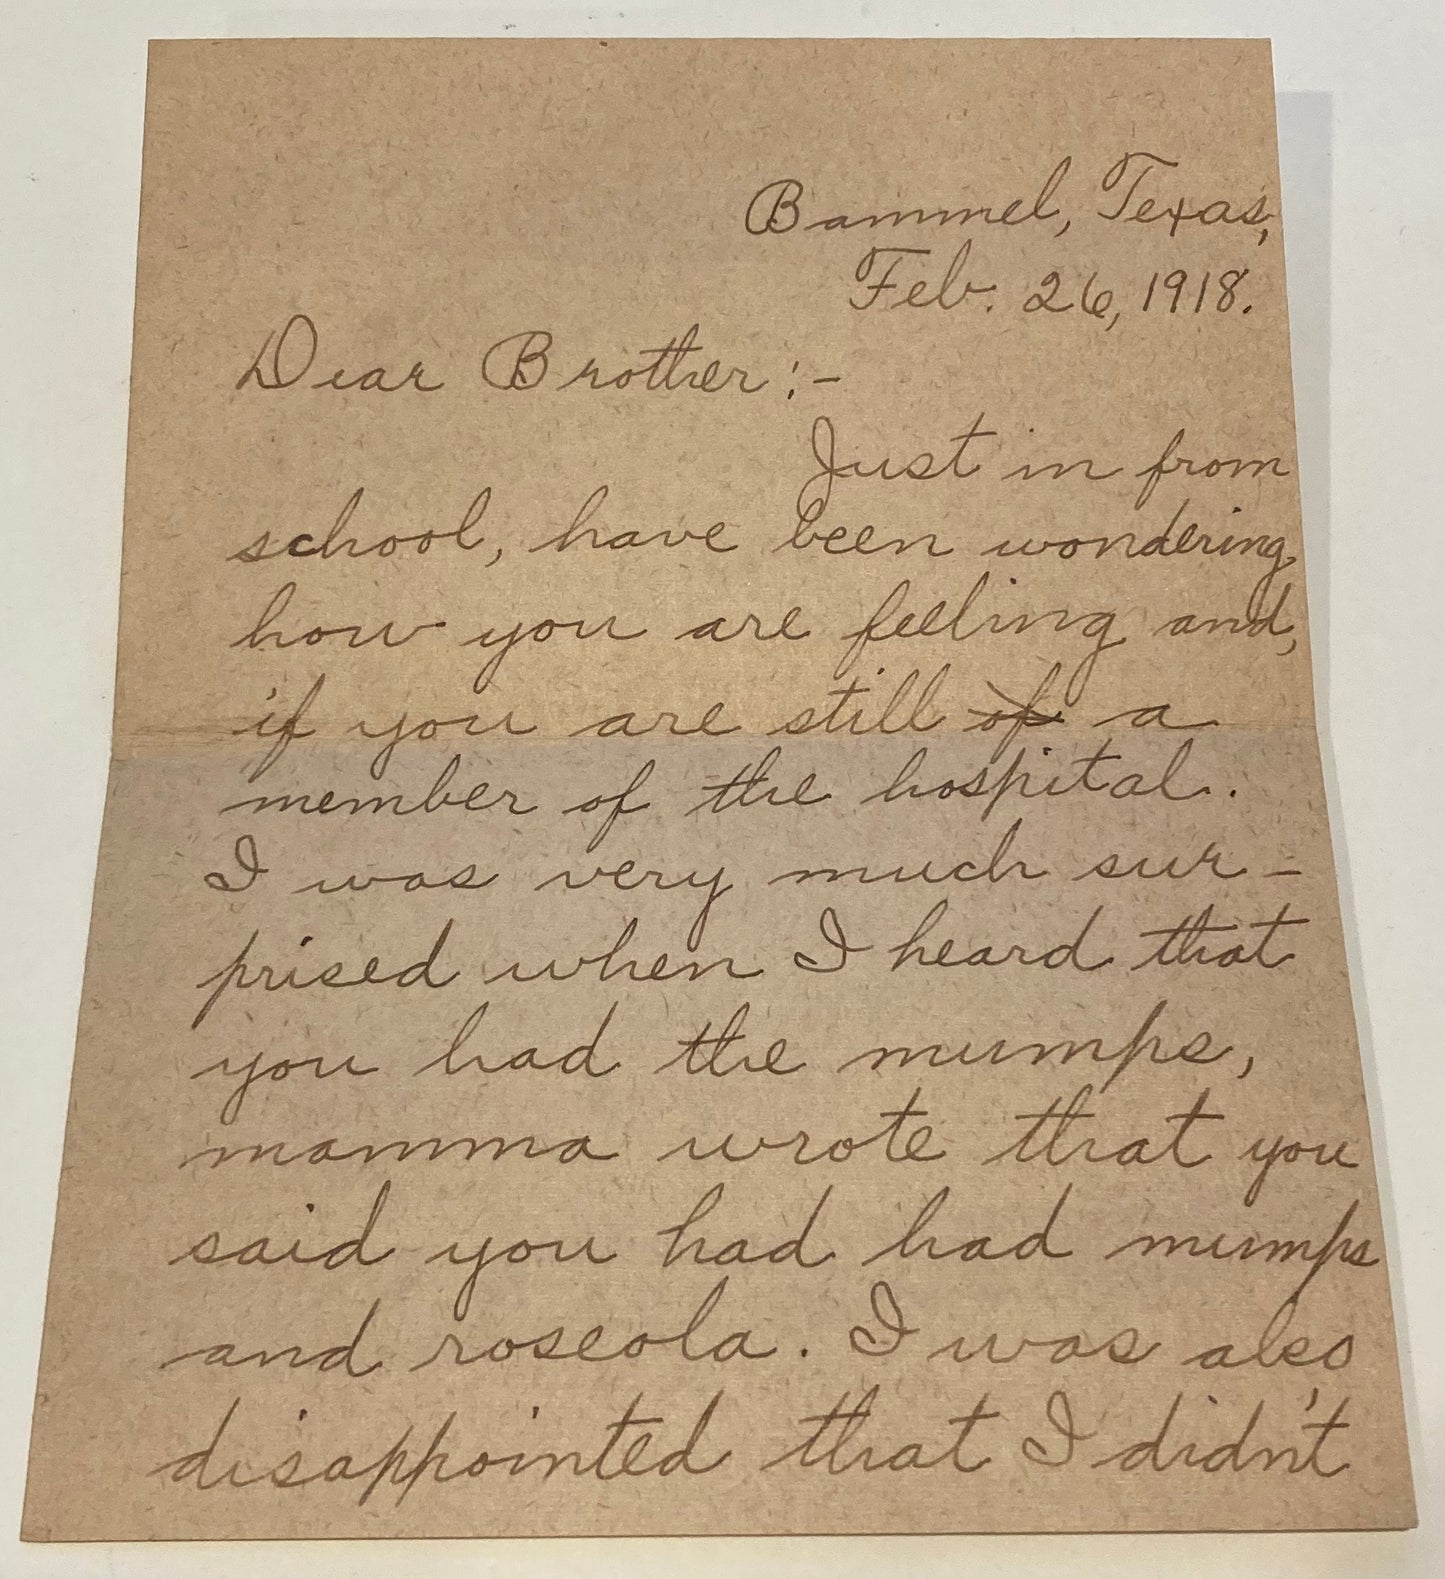 Bammel, Texas,
Feb. 26, 1918.
Dear Brother:-
Just in from
school, have been wondering
how you are feeling and,
if you are still of a
member of the hospital.
I was very much sur-
prised when I heard that
you had the mumps,
mamma wrote that you
said you had had mumps
and roseola. I was also
disappointed that I didn't